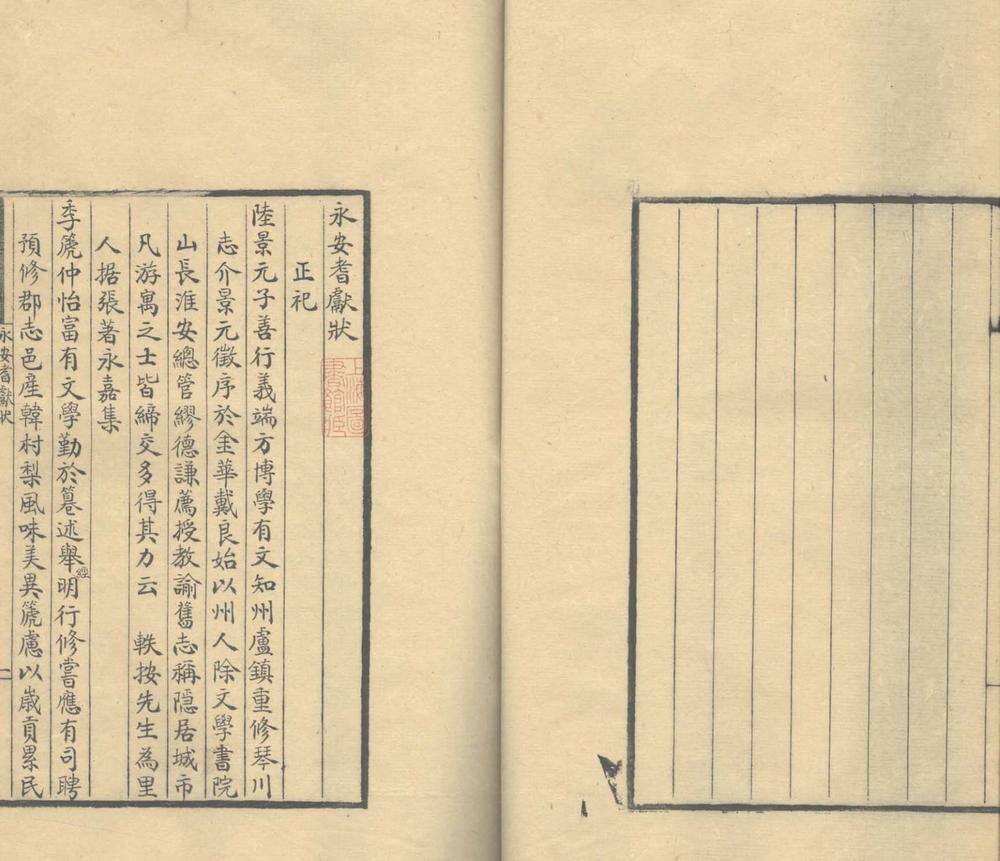 永安耆獻狀
正祀
陸景元子善行義端方博學有文知州盧鎮重修琴川
志介景元徵序於金華戴良始以州人除文學書院
山長淮安總管繆德謙薦授教諭舊志稱隱居城市
凡游寓之士皆締交多得其力云　軼按先生為里
人据張著永嘉集
季篪仲怡富有文學勤於篹述舉經明行修嘗應有司聘
預修郡志邑産韓村梨風味美異篪慮以歲貢累民
永安耆獻狀
上海圖書館藏